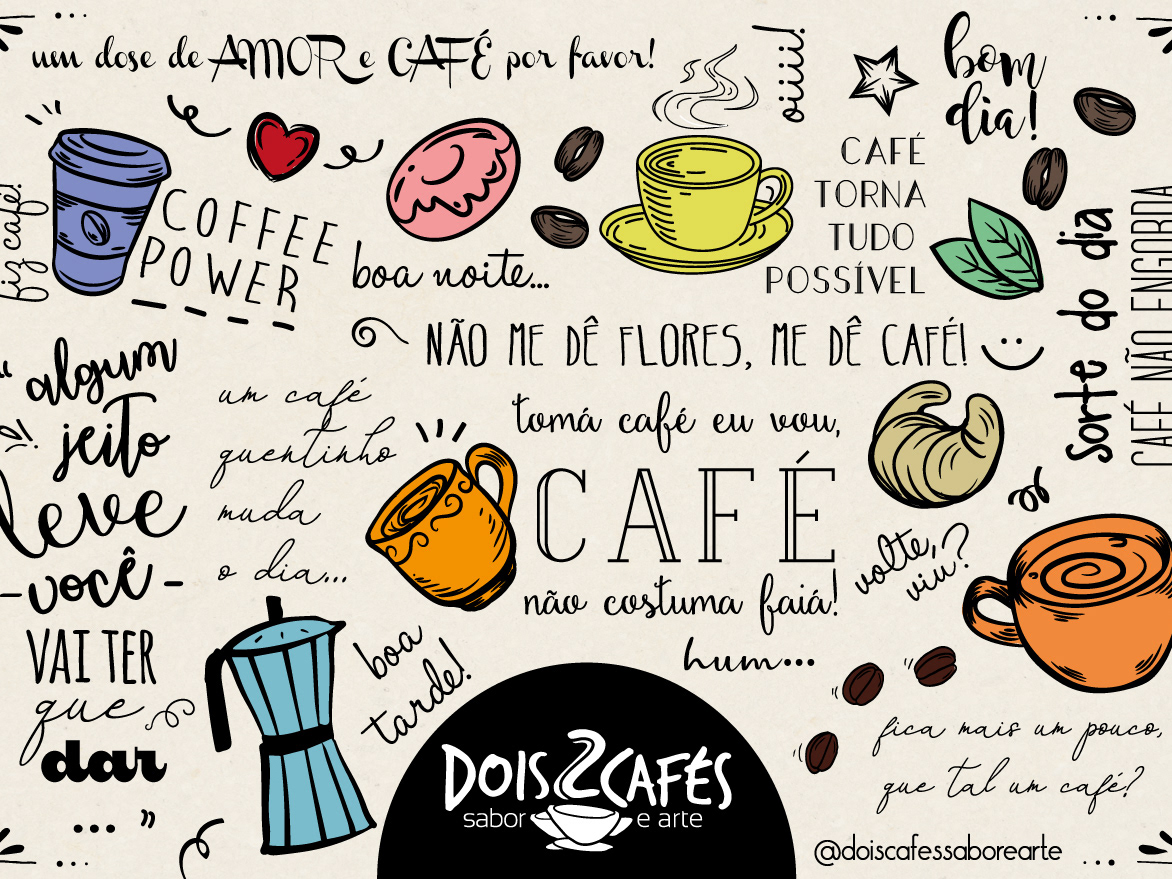 um dose de AMOR e CAFÉ por favor!
oiiii!
bom
dia!
fiz café!
COFFEE
POWER
boa noite...
CAFÉ
TORNA
TUDO
POSSÍVEL
Sorte do dia
CAFÉ NÃO ENGORDA
NÃO ME DÊ FLORES, ME DÊ CAFÉ!
"algum
jeito
leve
-você-
VAI TER
que
dar
..."
um café
quentinho
muda
o dia...
tomá café eu vou,
CAFÉ
não costuma faiá!
hum...
volte,
viu?
boa
tarde!
DOIS 2 CAFÉS
sabor e arte
fica mais um pouco,
que tal um café?
@doiscafessaborearte